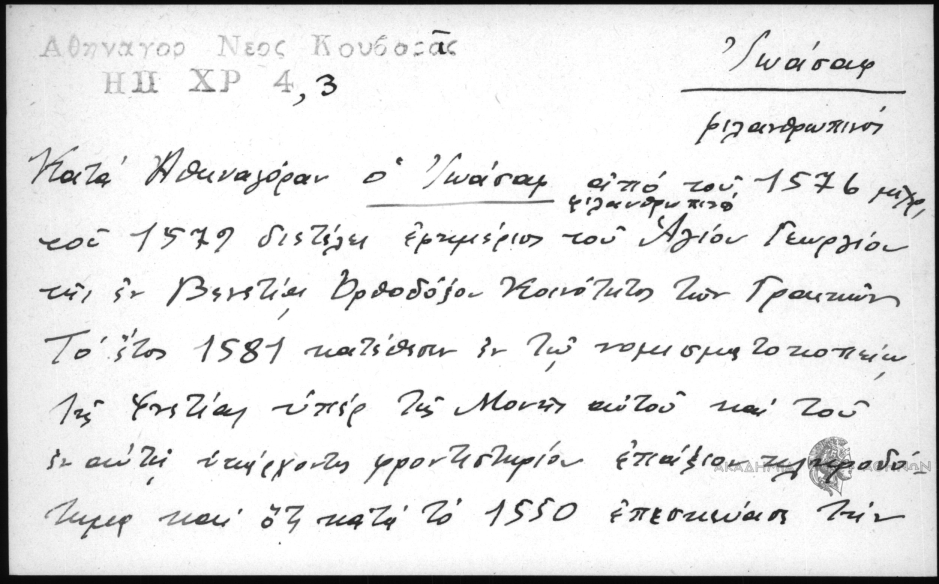 Αθηναγορ Νεος Κουβαρᾶς
ΗΠ ΧΡ 4,3
Ἰωάσαφ
φιλανθρωπινός
Κατά Ἀθηναγόραν ὁ Ἰωάσαφ φιλανθρωπινός ἀπό τοῦ 1576 μέχρι
τοῦ 1579 διετέλει ἐφημέριος τοῦ Ἁγίου Γεωργίου
τῆς ἐν Βενετίᾳ Ὀρθοδόξου Κοινότητος τῶν Γραικῶν
Τό ἔτος 1581 κατέθεσεν ἐν τῷ νομισματοκοπείῳ
τῆς Ἑνετίας ὑπέρ τῆς Μονῆς αὐτοῦ καί τοῦ
ἐν αὐτῇ ὑπάρχοντος φροντιστηρίου ἐπάξιον κληροδό-
τημα καί ὅτι κατά τό 1550 ἐπεσκεύασε τήν
ΑΚΑΔΗΜΙΑ ΑΘΗΝΩΝ